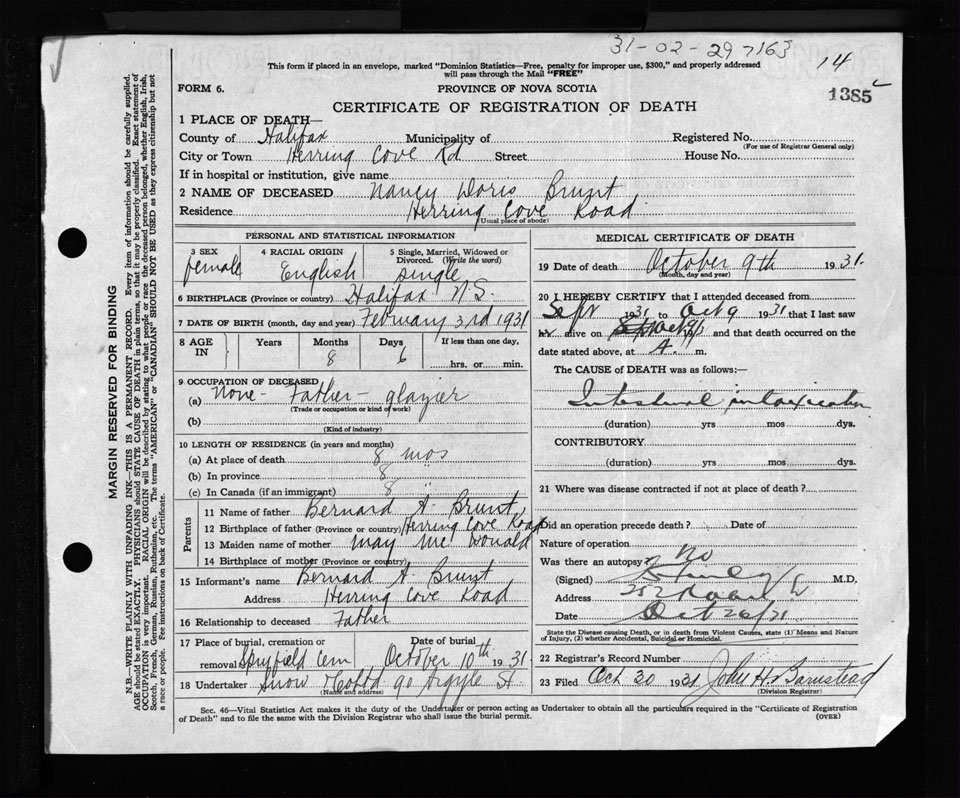 31-02-297163
14
This form if placed in an envelope, marked "Dominion Statistics—Free, penalty for improper use, $300," and properly addressed
will pass through the Mail "FREE"
FORM 6.
PROVINCE OF NOVA SCOTIA
1385
CERTIFICATE OF REGISTRATION OF DEATH
1 PLACE OF DEATH—
County of Halifax Municipality of Registered No.
(For use of Registrar General only)
City or Town Herring Cove Rd Street House No.
If in hospital or institution, give name
2 NAME OF DECEASED Nancy Doris Brunt
Residence Herring Cove Road
(Usual place of abode)
PERSONAL AND STATISTICAL INFORMATION
3 SEX female
4 RACIAL ORIGIN English
5 Single, Married, Widowed or Divorced. (Write the word) single
6 BIRTHPLACE (Province or country) Halifax N.S.
7 DATE OF BIRTH (month, day and year) February 3rd 1931
8 AGE IN Years Months 8 Days 6 If less than one day, hrs. or min.
9 OCCUPATION OF DECEASED
(a) None - Father - glazier
(Trade or occupation or kind of work)
(b)
(Kind of industry)
10 LENGTH OF RESIDENCE (in years and months)
(a) At place of death 8 mos
(b) In province 8 "
(c) In Canada (if an immigrant) 8 "
Parents
11 Name of father Bernard A. Brunt
12 Birthplace of father (Province or country) Herring Cove Road
13 Maiden name of mother May McDonald
14 Birthplace of mother (Province or country)
15 Informant's name Bernard A. Brunt
Address Herring Cove Road
16 Relationship to deceased Father
17 Place of burial, cremation or removal Spryfield Cem
Date of burial October 10th 1931
18 Undertaker Snow 90 Argyle St.
(Name and address)
MEDICAL CERTIFICATE OF DEATH
19 Date of death October 9th 1931.
(Month, day and year)
20 I HEREBY CERTIFY that I attended deceased from
Sept 1931 to Oct 9 1931 that I last saw
h alive on Oct 9 and that death occurred on the
date stated above, at A. m.
The CAUSE of DEATH was as follows:—
Intestinal intoxication
(duration) yrs mos dys.
CONTRIBUTORY
(duration) yrs mos dys.
21 Where was disease contracted if not at place of death?
Did an operation precede death? Date of
Nature of operation
Was there an autopsy? No
(Signed) M.D.
Address
Date Oct 26/31
State the Disease causing Death, or in death from Violent Causes, state (1) Means and Nature
of Injury, (2) whether Accidental, Suicidal or Homicidal.
22 Registrar's Record Number
23 Filed Oct 30 1931 John H. Barnstead
(Division Registrar)
Sec. 46—Vital Statistics Act makes it the duty of the Undertaker or person acting as Undertaker to obtain all the particulars required in the "Certificate of Registration
of Death" and to file the same with the Division Registrar who shall issue the burial permit.
(OVER)
MARGIN RESERVED FOR BINDING
N.B.—WRITE PLAINLY WITH UNFADING INK—THIS IS A PERMANENT RECORD. Every item of information should be carefully supplied.
AGE should be stated EXACTLY. PHYSICIANS should STATE CAUSE OF DEATH in plain terms, so that it may be properly classified. Exact statement of
OCCUPATION is very important. RACIAL ORIGIN will be described by stating to what people or race the deceased person belonged, whether English, Irish,
Scotch, French, German, Russian, Ruthenian, etc. The terms "AMERICAN" or "CANADIAN" SHOULD NOT BE USED as they express citizenship but not
a race or people. See instructions on back of Certificate.